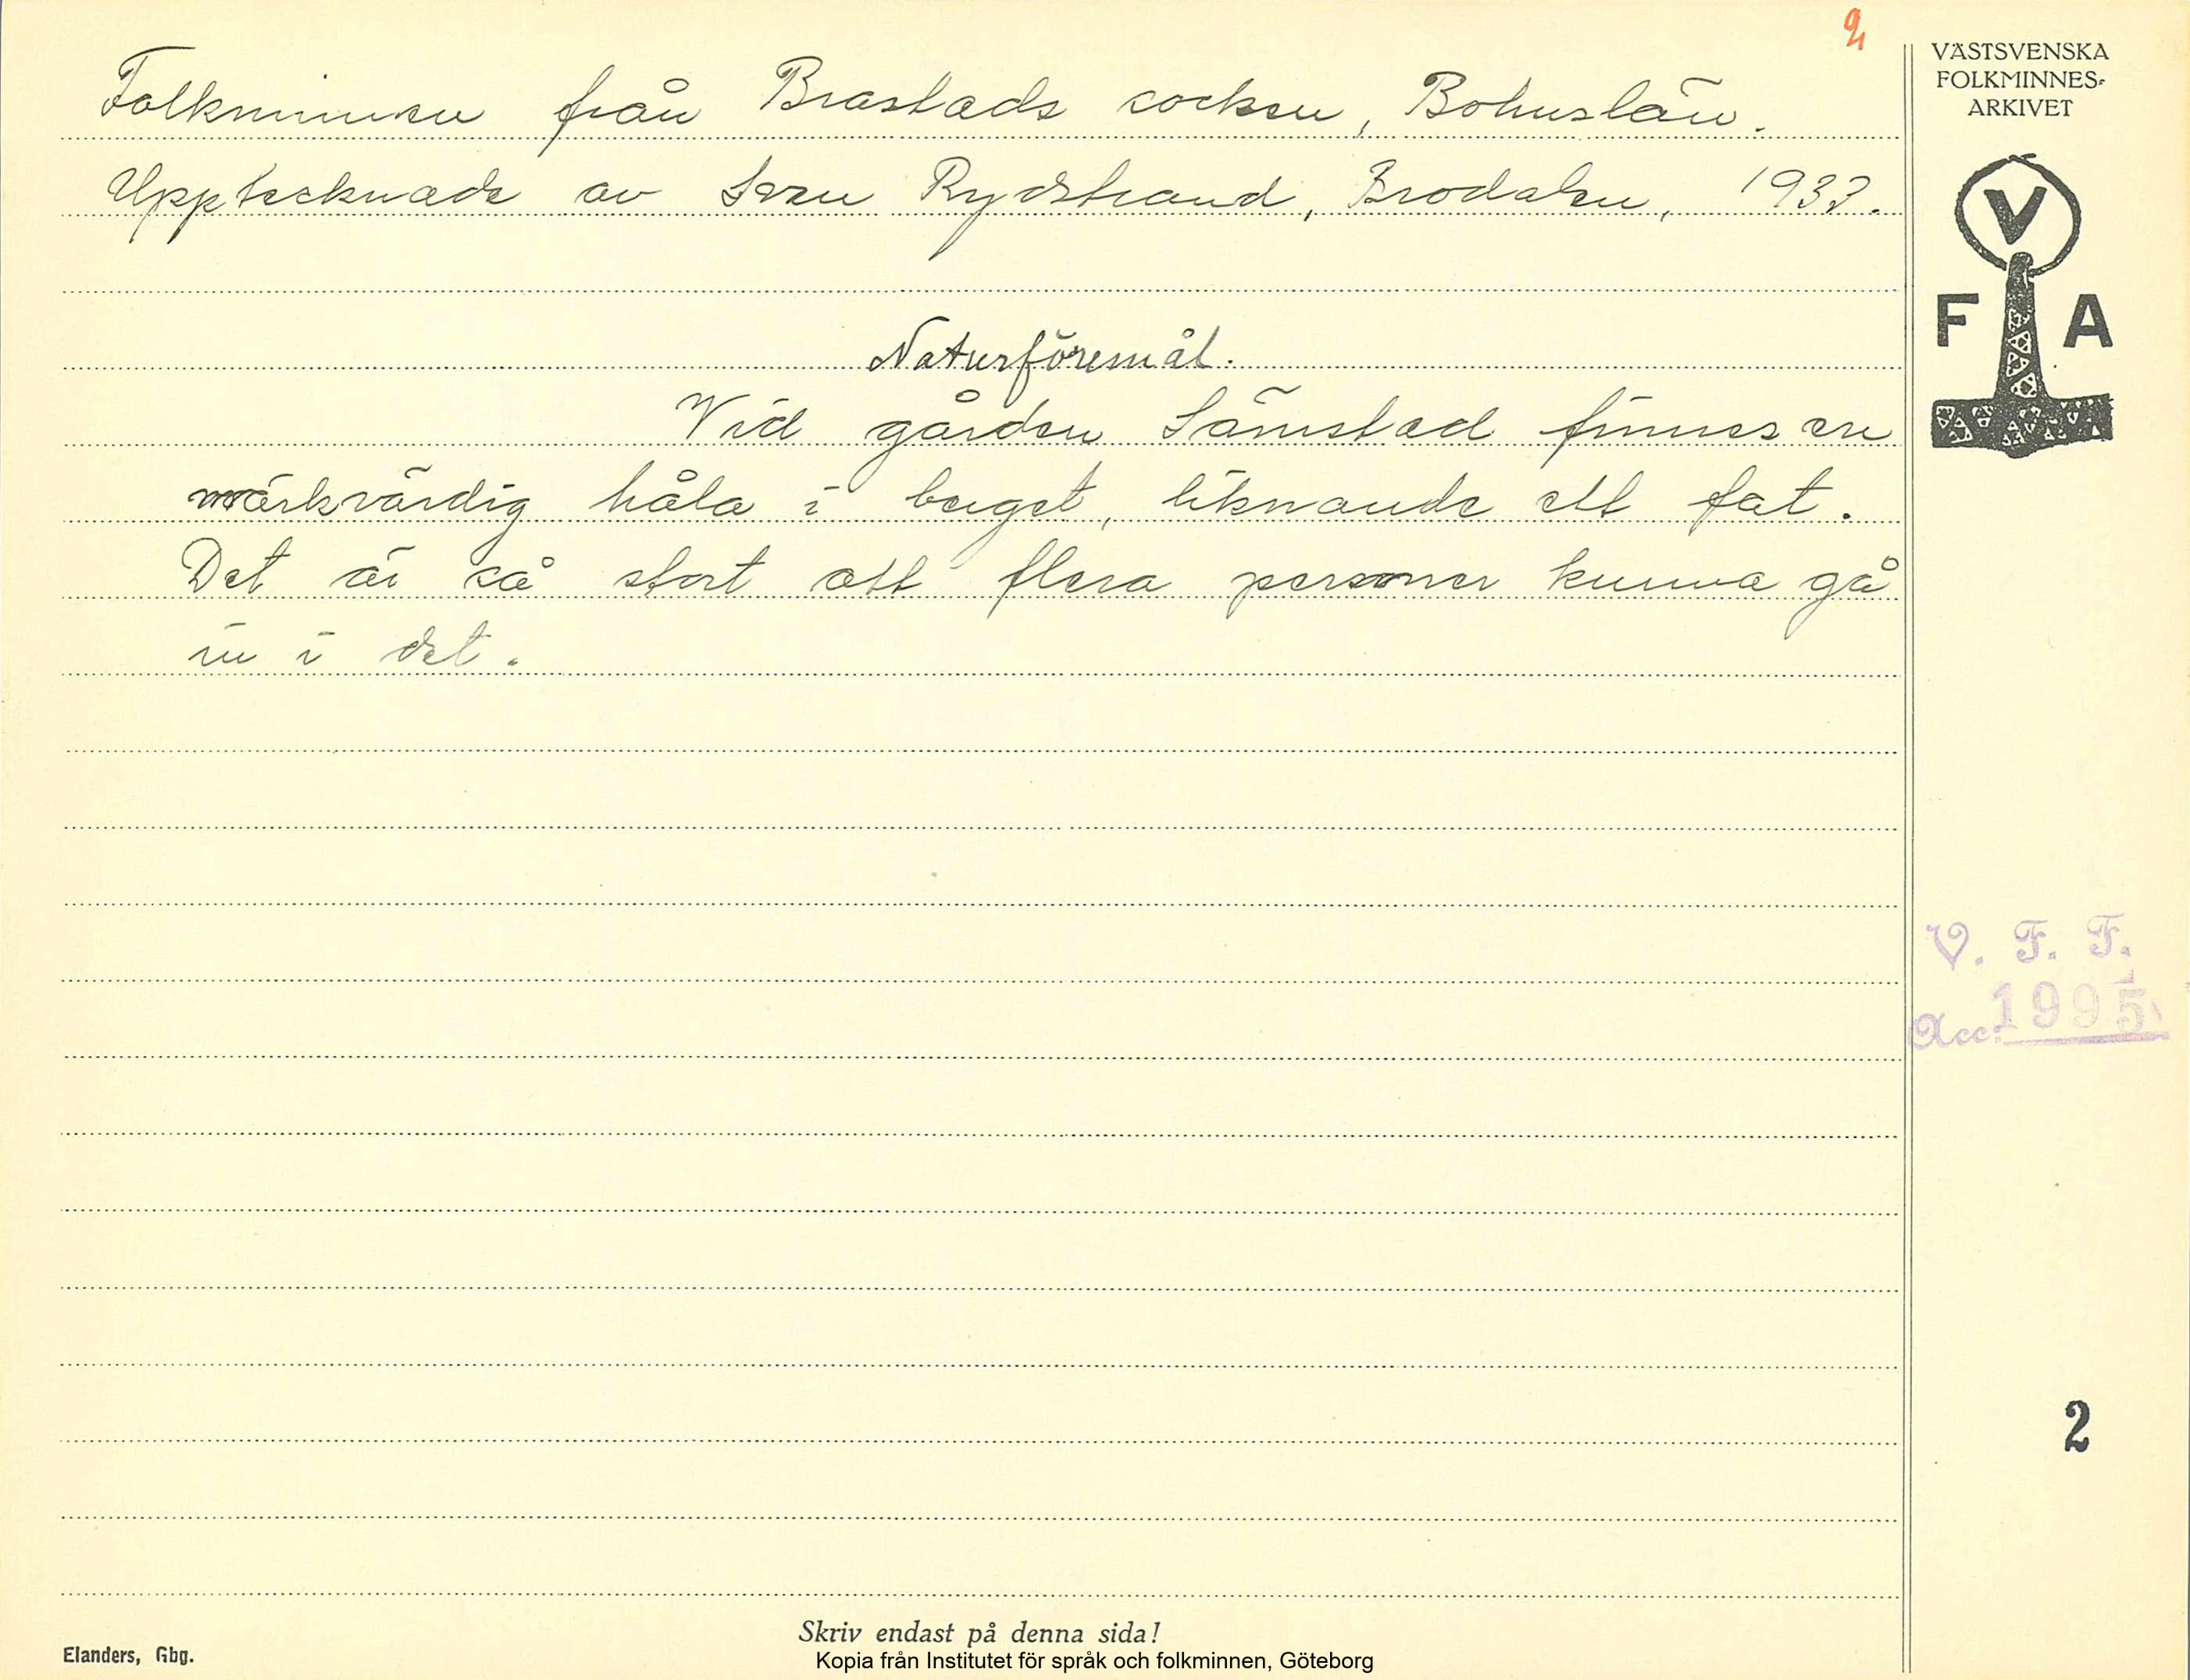 2
Folkminnen från Brastads socken, Bohuslän.
Upptecknade av Sven Rydstrand, Brodalen, 1933.
Naturföremål.
Vid gården Sämstad finnes en
märkvärdig håla i berget, liknande ett fat.
Det är så stort att flera personer kunna gå
in i det.
VÄSTSVENSKA
FOLKMINNES-
ARKIVET
V
F A
V. F. F.
Acc. 1995
2
Skriv endast på denna sida!
Elanders, Gbg.
Kopia från Institutet för språk och folkminnen, Göteborg